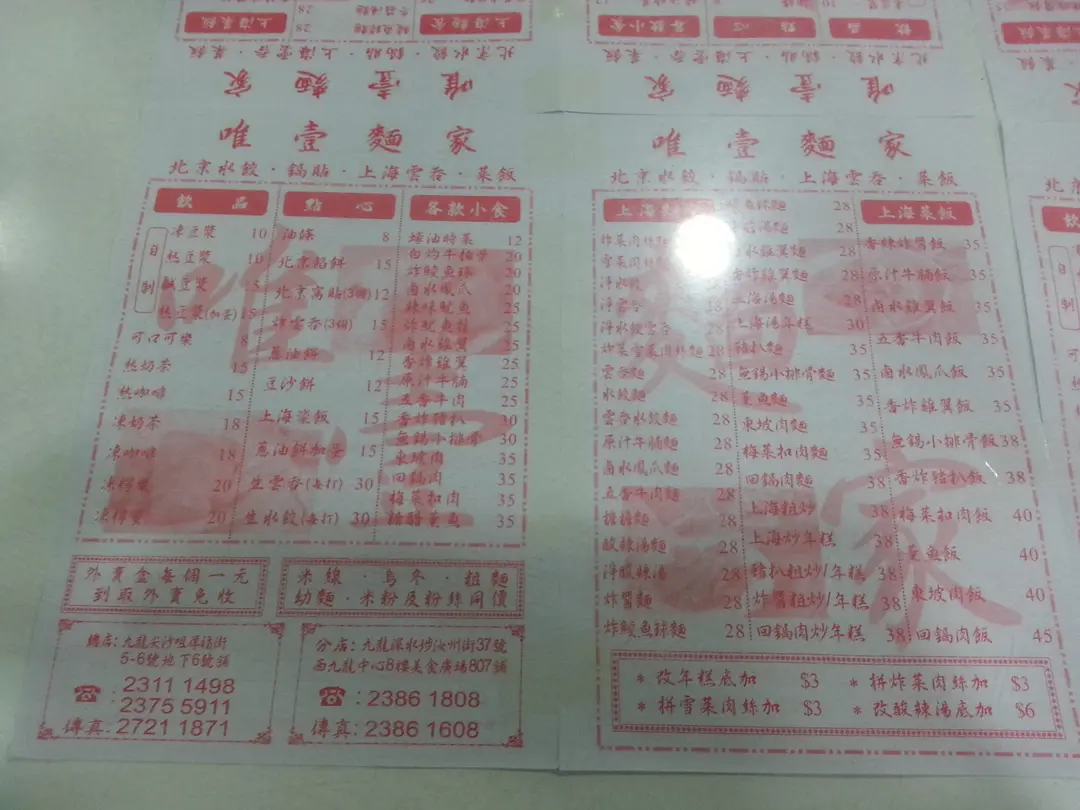 唯壹麵家
北京水餃·鍋貼·上海雲吞·菜飯
飲品
自制
凍豆漿 10
熱豆漿 10
鹹豆漿 15
熱豆漿(加蛋) 15
可口可樂 8
熱奶茶 15
熱咖啡 15
凍奶茶 18
凍咖啡 18
凍檸樂 20
凍檸蜜 20
點心
油條 8
北京餡餅 15
北京窩貼(3個) 12
炸雲吞(3個) 15
蔥油餅 12
豆沙餅 12
上海粢飯 15
蔥油餅加蛋 15
生雲吞(每打) 30
生水餃(每打) 30
各款小食
蠔油時菜 12
白灼牛柏葉 20
炸鯪魚球 20
鹵水鳳爪 20
辣味魷魚 20
炸魷魚鬚 25
鹵水雞翼 25
香炸雞翼 25
原汁牛腩 25
五香牛肉 25
香炸豬扒 10
無錫小排骨 30
東坡肉 35
回鍋肉 35
梅菜扣肉 35
糖醋薰魚 35
外賣盒每個一元
到取外賣免收
米線·烏冬·粗麵
幼麵·米粉及粉絲同價
總店:九龍尖沙咀厚福街
5-6號地下6號舖
2311 1498
2375 5911
傳真:2721 1871
分店:九龍深水埗汝州街37號
西九龍中心8樓美食廣場807舖
2386 1808
傳真:2386 1608
唯壹麵家
北京水餃·鍋貼·上海雲吞·菜飯
淨水餃
淨雲吞 18
淨水餃雲吞
炸菜雪菜肉絲麵 28
雲吞麵 28
水餃麵 28
雲吞水餃麵 28
原汁牛腩麵 28
鹵水鳳爪麵 28
五香牛肉麵 28
擔擔麵 28
酸辣湯麵 28
淨酸辣湯 28
炸醬麵 28
炸鯪魚球麵 28
魚球麵 28
湯麵 28
水雞翼麵 28
香炸雞翼麵 28
上海湯麵 28
上海湯年糕 30
豬扒麵 35
無錫小排骨麵 35
薰魚麵 35
東坡肉麵 35
梅菜扣肉麵 35
回鍋肉麵 38
上海粗炒 38
上海炒年糕 38
豬扒粗炒/年糕 38
炸醬粗炒/年糕 38
回鍋肉炒年糕 38
上海菜飯
香辣炸醬飯 35
原汁牛腩飯 35
鹵水雞翼飯 35
五香牛肉飯 35
鹵水鳳爪飯 35
香炸雞翼飯 35
無錫小排骨飯 38
香炸豬扒飯 38
梅菜扣肉飯 40
薰魚飯 40
東坡肉飯 40
回鍋肉飯 45
* 改年糕底加 $3
* 拼炸菜肉絲加 $3
* 拼雪菜肉絲加 $3
* 改酸辣湯底加 $6